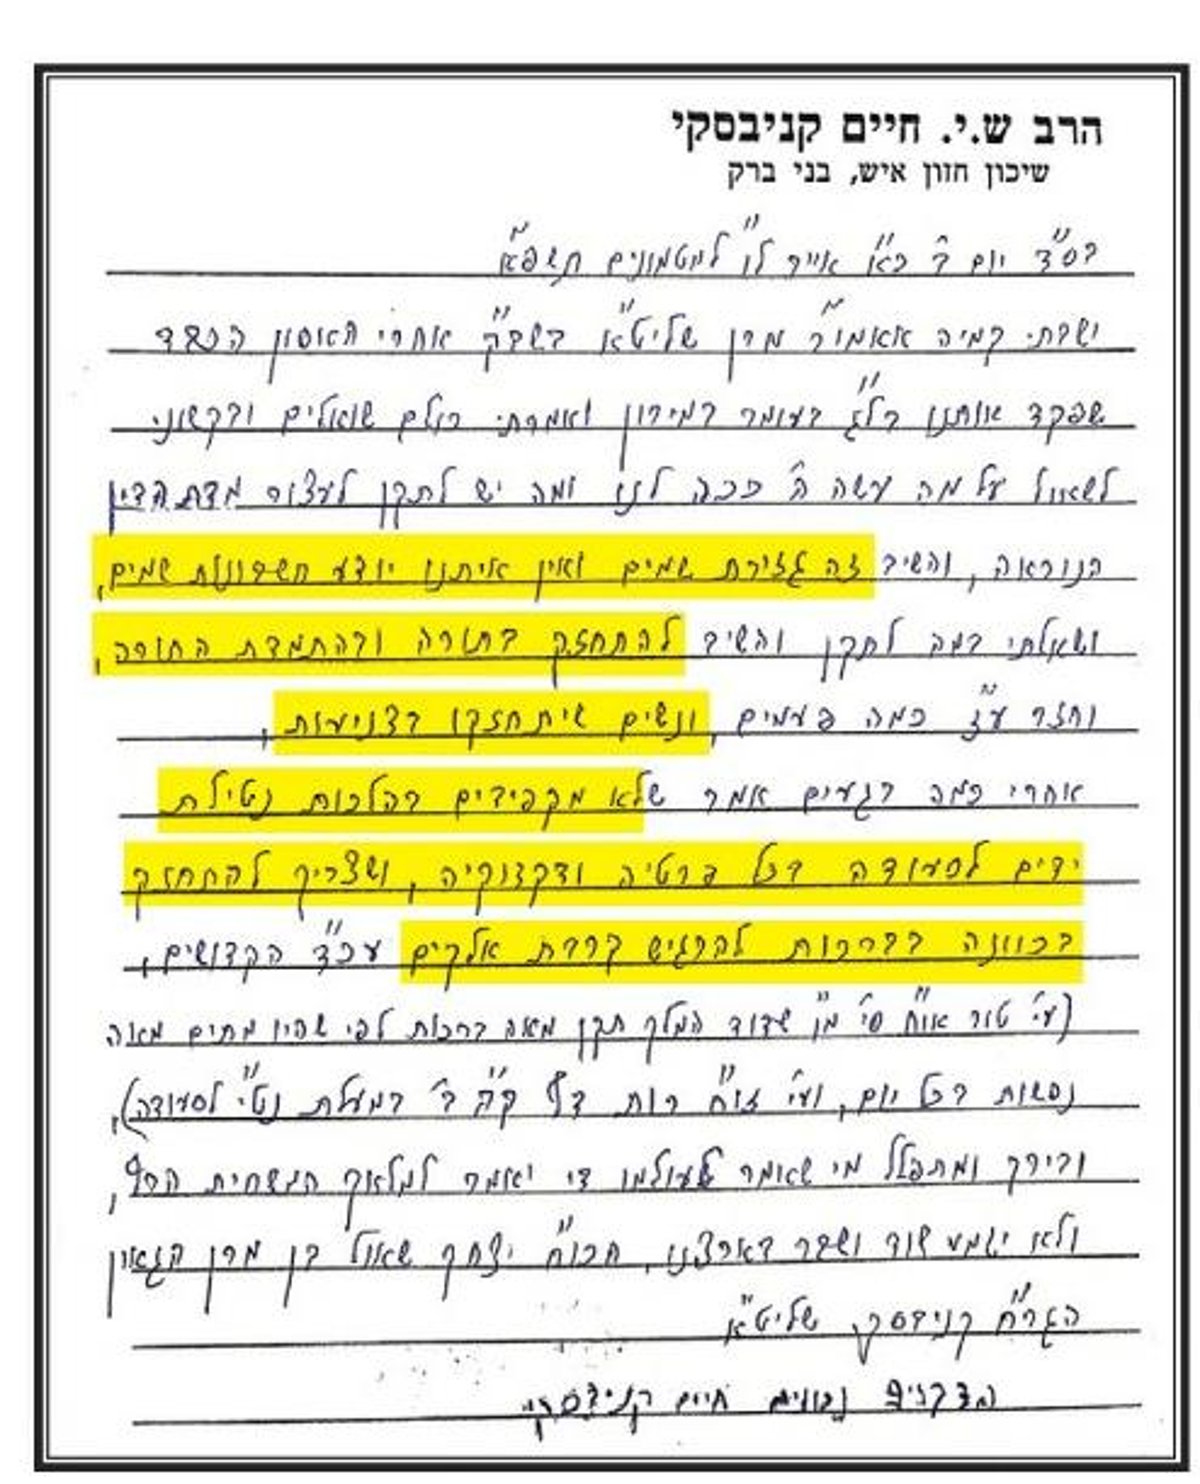 הרב ש.י. חיים קניבסקי
שיכון חזון איש, בני ברק
בס"ד יום ב' כ"א אייר ל"ו למטמונים תשפ"א
ישבתי קמיה אאמו"ר מרן שליט"א בשב"ק אחרי האסון הכבד
שפקד אותנו בל"ג בעומר במירון ואמרתי כולם שואלים ובקשוני
לשאול על מה עשה ה' ככה לנו ומה יש לתקן לעצור מדת הדין
הנוראה, והשיב זה גזירת שמים ואין איתנו יודע חשבונות שמים,
ושאלתי במה לתקן והשיב להתחזק בתורה ובהתמדת התורה,
וחזר ע"ז כמה פעמים, ונשים שיתחזקו בצניעות,
אחרי כמה רגעים אמר שלא מקפידים בהלכות נטילת
ידים לסעודה בכל פרטיה ודקדוקיה, ושצריך להתחזק
בכוונה בברכות להרגיש קרבת אלקים עכ"ד הקדושים,
(עי' טור או"ח סי' מ"ו שדוד המלך תקן מאה ברכות לפי שהיו מתים מאה
נפשות בכל יום, ועי' זו"ח רות דף ק"ב ב' במעלת נט"י לסעודה),
ובירך ומתפלל מי שאמר לעולמו די יאמר למלאך המשחית הרף,
ולא ישמע שוד ושבר בארצנו, הכו"ח יצחק שאול בן מרן הגאון
הגר"ח קניבסקי שליט"א
הדברים נכונים חיים קניבסקי